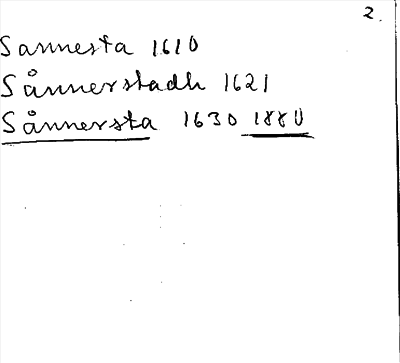 2.
Sannesta 1610
Sånnerstadh 1621
Sånnersta 1630 1880